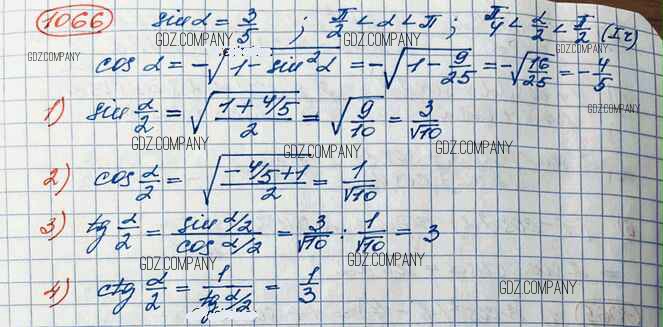 1066 sin α = 3/5 ; π/2 < α < π ; π/4 < α/2 < π/2 (I ч)
GDZ.COMPANY GDZ.COMPANY GDZ.COMPANY
cos α = -√(1 - sin²α) = -√(1 - 9/25) = -√(16/25) = -4/5
GDZ.COMPANY GDZ.COMPANY GDZ.COMPANY
1) sin α/2 = √((1 + 4/5)/2) = √(9/10) = 3/√10
GDZ.COMPANY GDZ.COMPANY GDZ.COMPANY
2) cos α/2 = √((-4/5 + 1)/2) = 1/√10
3) tg α/2 = (sin α/2)/(cos α/2) = 3/√10 : 1/√10 = 3
GDZ.COMPANY GDZ.COMPANY
4) ctg α/2 = 1/(tg α/2) = 1/3
GDZ.COMPANY